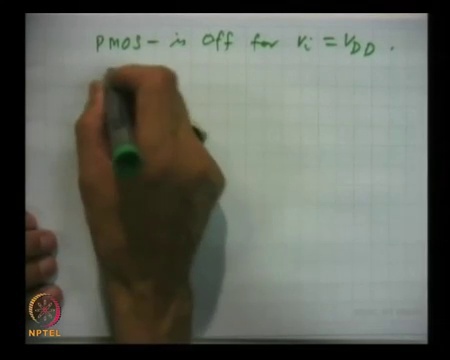 PMOS - is Off for Vi = VDD.
NPTEL